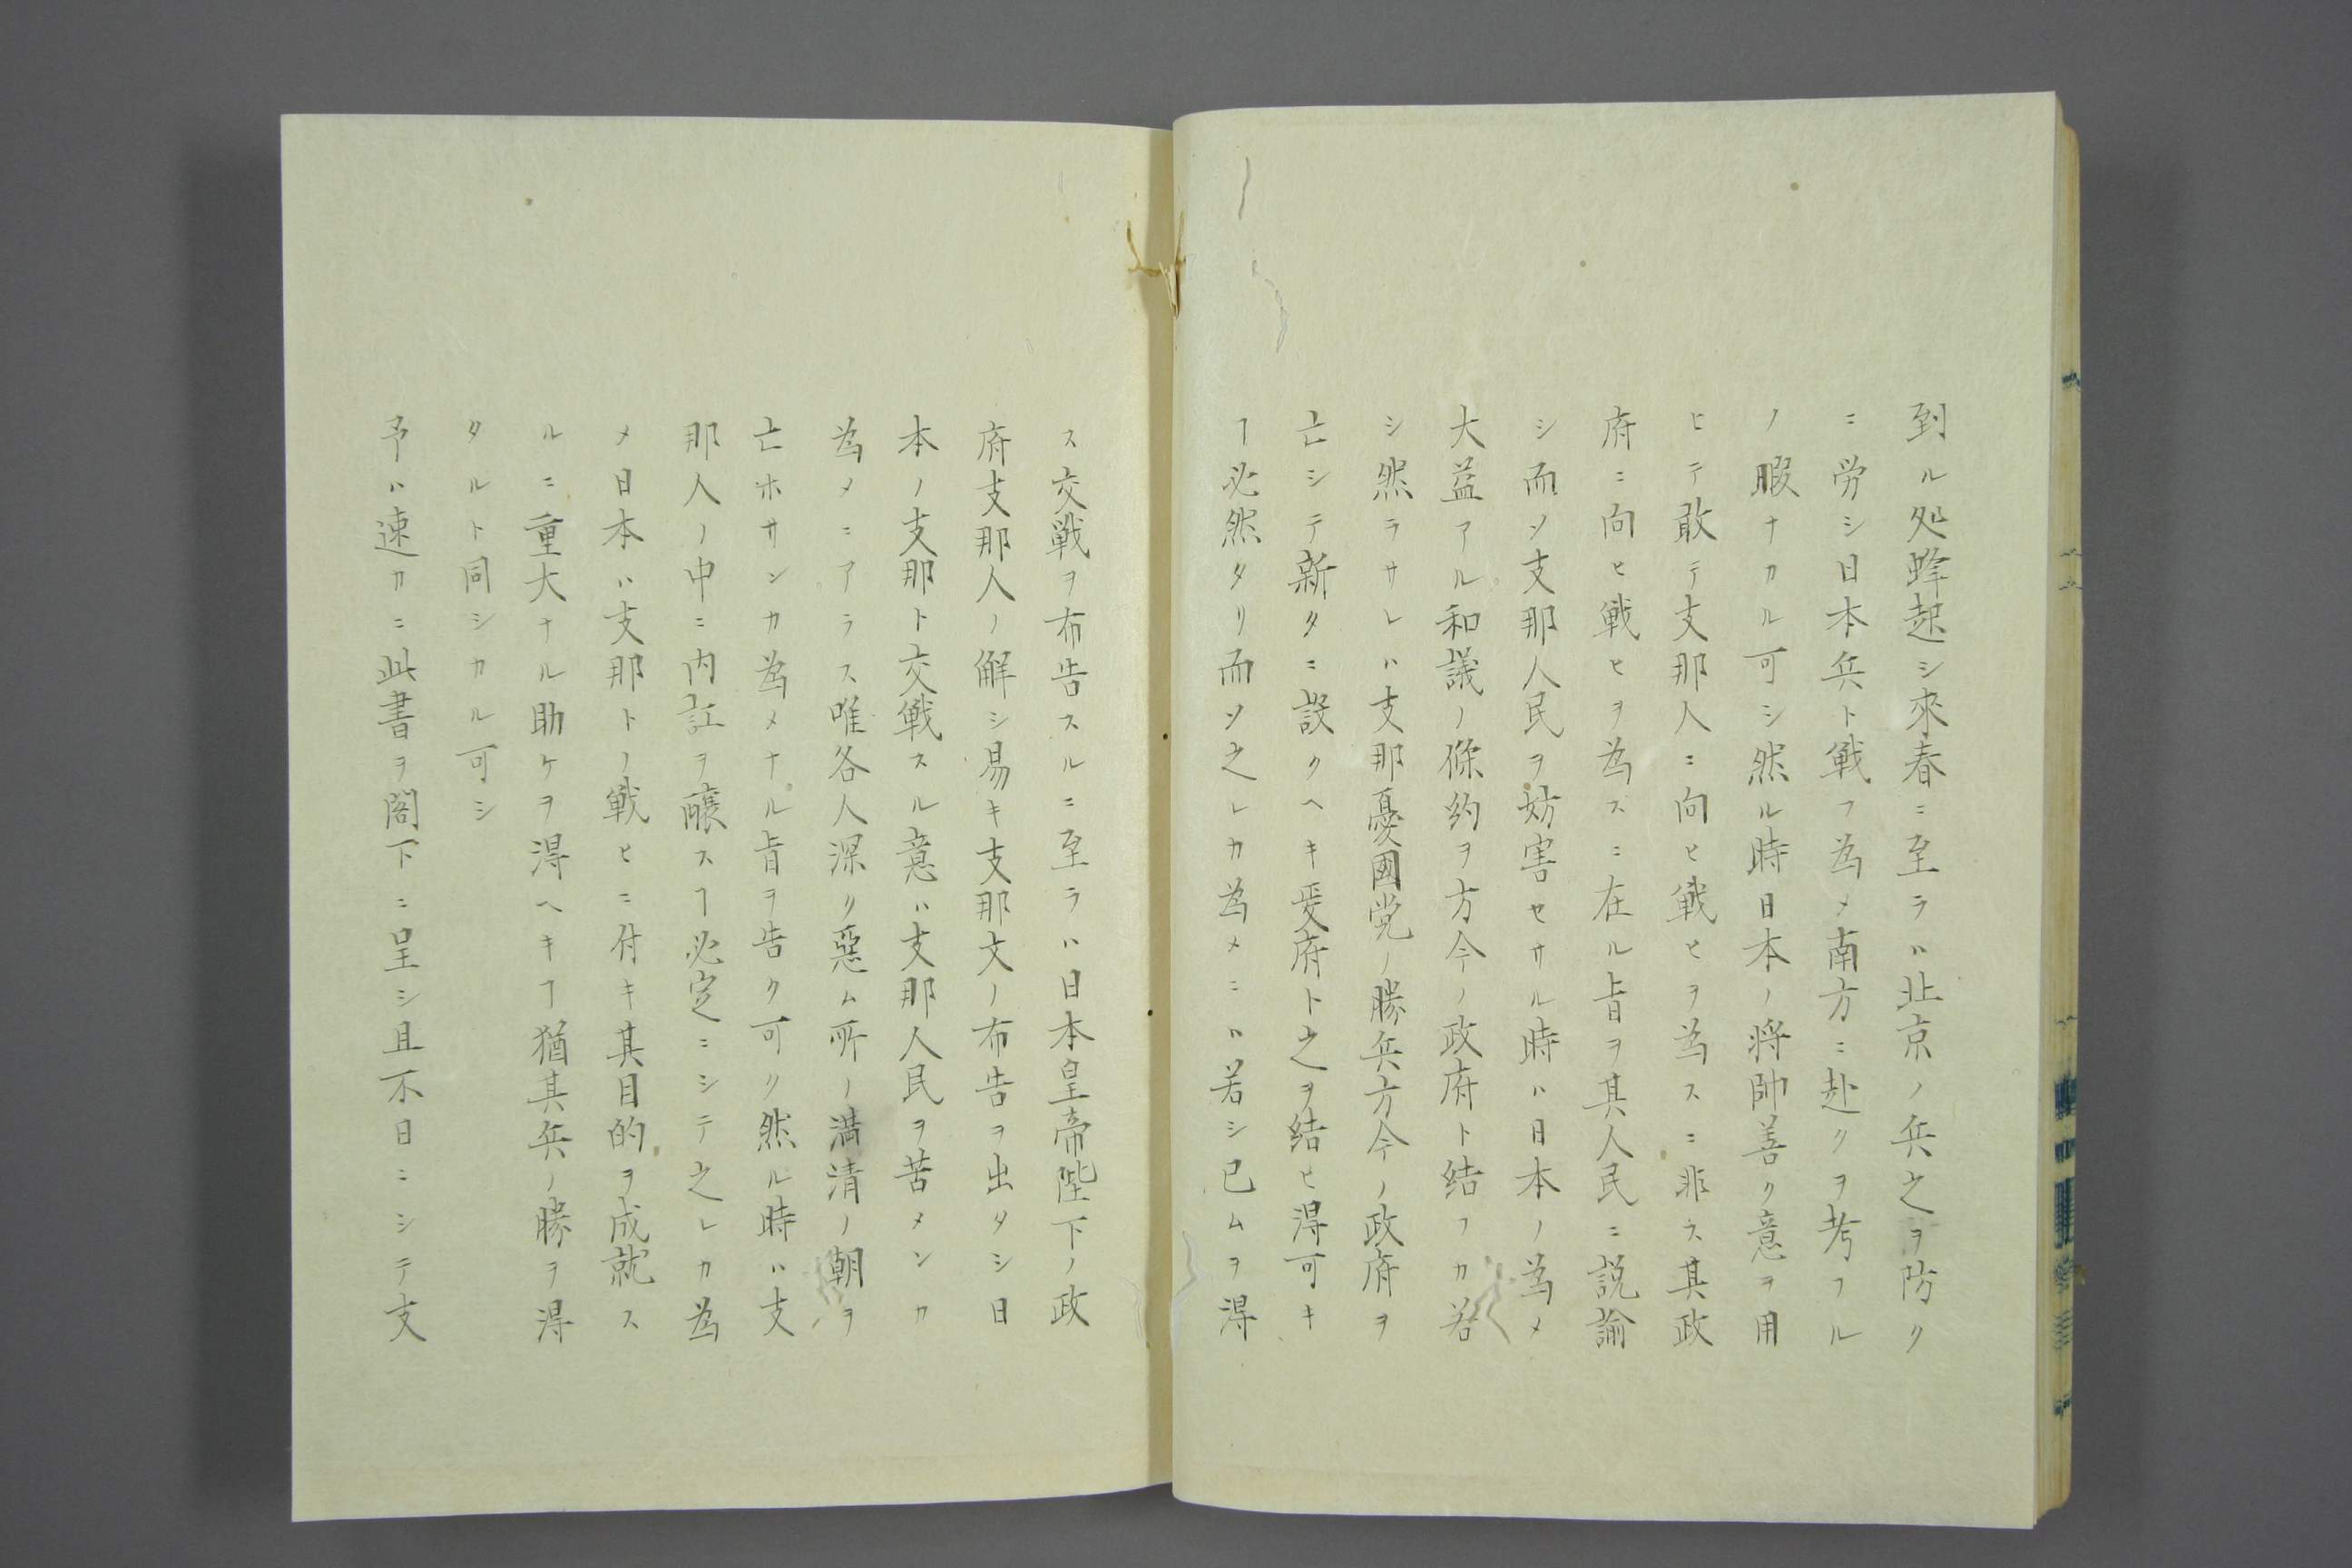 到ル処蜂起シ來春ニ至ラハ北京ノ兵之ヲ防ク
ニ労シ日本兵ト戦フ為メ南方ニ赴クヲ考フル
ノ暇ナカル可シ然ル時日本ノ将帥善ク意ヲ用
ヒテ敢テ支那人ニ向ヒ戦ヒヲ為スニ非ス其政
府ニ向ヒ戦ヒヲ為スニ在ル旨ヲ其人民ニ説諭
シ而ソ支那人民ヲ妨害セサル時ハ日本ノ為メ
大益アル和議ノ條約ヲ方今ノ政府ト結フカ若
シ然ラサレハ支那憂國党ノ勝兵方今ノ政府ヲ
亡シテ新タニ設クヘキ政府ト之ヲ結ヒ得可キ
ヿ必然タリ而ソ之レカ為メニハ若シ已ムヲ得
ス交戦ヲ布告スルニ至ラハ日本皇帝陛下ノ政
府支那人ノ解シ易キ支那文ノ布告ヲ出タシ日
本ノ支那ト交戦スル意ハ支那人民ヲ苦メンカ
為メニアラス唯各人深ク惡ム所ノ満清ノ朝ヲ
亡ホサンカ為メナル旨ヲ告ク可ク然ル時ハ支
那人ノ中ニ内訌ヲ醸スヿ必定ニシテ之レカ為
メ日本ハ支那トノ戦ヒニ付キ其目的ヲ成就ス
ルニ重大ナル助ケヲ得ヘキヿ猶其兵ノ勝ヲ得
タルト同シカル可シ
予ハ速カニ此書ヲ閣下ニ呈シ且不日ニシテ支